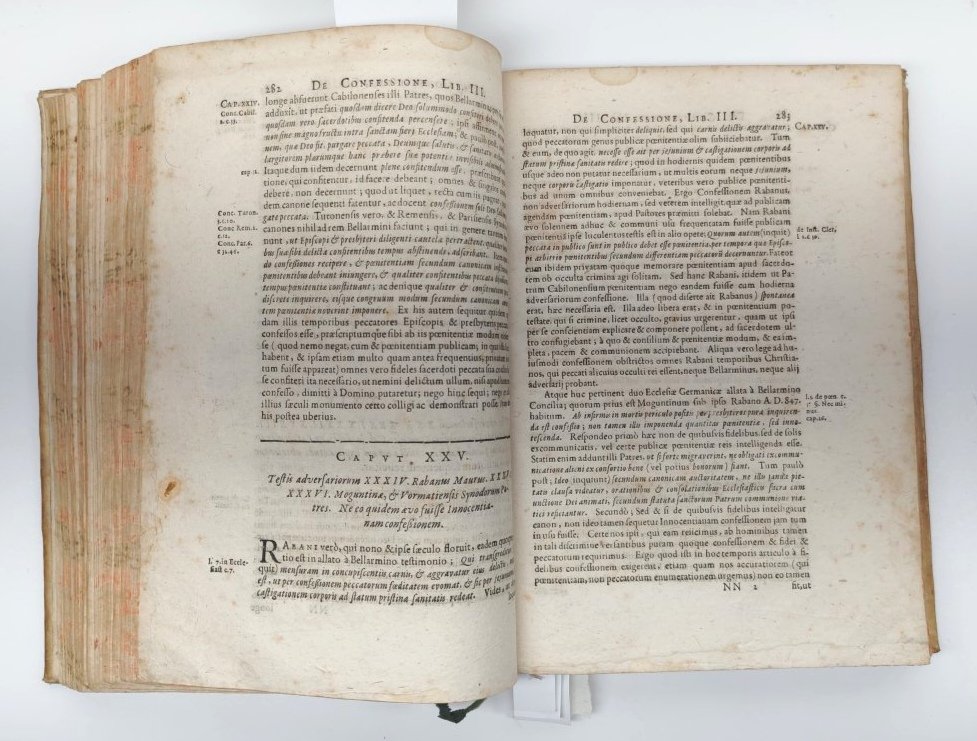 282 DE CONFESSIONE, LIB. III.
CAP. XXIV.
Conc. Cabil.
2. c. 33.
cap. 2.
Conc. Turon.
3. c. 10.
Conc. Rem. 2.
c. 12.
Conc. Par. 6.
longe absuerunt Cabilonenses illi Patres, quos Bellarminus
adduxit, ut præfati quosdam dicere Deo solummodo confiteri debere
quosdam vero sacerdotibus confitenda percensere; ipsi
non sine magno fructu intra sanctam fieri Ecclesiam;
nem, quæ Deo fit, purgare peccata, Deumque salutis & sanitatis
largitorem plerumque hanc præbere suæ potentiæ invisibili
Itaque dum iidem decernunt plene confitendum esse,
tione; qui confitentur, id facere debeant; omnes &
debere, non decernunt; quod ut liquet, recta cum iis pugnat
dem canone sequenti fatentur, ac docent confessionem soli Deo
gate peccata. Turonensis vero, & Remensis, & Parisiensis
canones nihil ad rem Bellarmini faciunt; qui in genere
nunt, ut Episcopi & presbyteri diligenti cautela pertractent,
bus sua sibi delicta confitentibus tempus abstinendi, adscribant. Item
do confessiones recipere, & pœnitentiam secundum canonicam
pœnitentibus debeant iniungere, & qualiter confitentibus peccata
tempus pœnitentiæ constituant; ac denique qualiter & confitentium
discrete inquirere, eisque congruum modum secundum canonicam
tem pœnitentiæ noverint imponere. Ex his autem sequitur quidem
dam illis temporibus peccatores Episcopis & presbyteris peccata
confessos esse, præscriptumque sibi ab iis pœnitentiæ modum
se (quod nemo negat, cum & pœnitentiam publicam, in qua
habent, & ipsam etiam multo quam antea frequentius,
tum fuisse appareat) omnes vero fideles sacerdoti peccata sua
se confiteri ita necessario, ut nemini delictum ullum, nisi apud
confesso, dimitti à Domino putaretur; nego hinc sequi; nego
illius sæculi monumento certo colligi ac demonstrari posse,
his postea uberius.
CAPUT. XXV.
Testis adversariorum XXXIV. Rabanus Maurus. XXXV.
XXXVI. Moguntina, & Vormatiensis Synodorum Pa-
tres. Ne eo quidem ævo fuisse Innocentia-
nam confessionem.
l. 7. in Eccle-
siast. c. 7.
RABANI verò, qui nono & ipse sæculo floruit, eadem quoque
tio est in allato à Bellarmino testimonio; Qui transgreditur
quit) mensuram in concupiscentiis carnis, & aggravatur eius delictis,
est, ut per confessionem peccatorum fœditatem evomat, & sic per jejunium
castigationem corporis ad statum pristinæ sanitatis redeat. Vides, ut
NN longe
DE CONFESSIONE, LIB. III. 283
CAP. XXV.
loquatur, non qui simpliciter deliquit, sed qui carnis delictis aggravatur;
quod peccatorum genus publicæ pœnitentiæ olim subiiciebatur. Tum
& eum, de quo agit, necesse esse ait per jejunium & castigationem corporis ad
statum pristinæ sanitatis redire; quod in hodiernis quidem pœnitentibus
usque adeo non putatur necessarium, ut multis eorum neque jejunium,
neque corporis castigatio imponatur, veteribus vero publice pœnitenti-
bus ad unum omnibus conveniebat. Ergo Confessionem Rabanus,
non adversariorum hodiernam, sed veterem intelligit, quæ ad publicam
agendam pœnitentiam, apud Pastores præmitti solebat. Nam Rabani
ævo solennem adhuc & communi usu frequentatam fuisse publicam
pœnitentiã ipse luculentus testis est in alio opere; Quorum autem (inquit)
peccata in publico sunt in publico debet esse pœnitentia per tempora quæ Episco-
pi arbitrio pœnitentibus secundum differentiam peccatorũ decernuntur. Fateor
eum ibidem privatam quoque memorare pœnitentiam apud sacerdo-
tem ob occulta crimina agi solitam. Sed hanc Rabani, itidem ut Pa-
trum Cabilonensium pœnitentiam nego eandem fuisse cum hodierna
adversariorum confessione. Illa (quod diserte ait Rabanus) spontanea
erat, hæc necessaria est. Illa adeo libera erat, & in pœnitentium po-
testate, qui si crimine, licet occulto, gravius urgerentur, quam ut ipsi
per se conscientiam explicare & componere possent, ad sacerdotem ul-
tro confugiebant; à quo & consilium & pœnitentiæ modum, & ea im-
pleta, pacem & communionem accipiebant. Aliqua vero lege ad hu-
iusmodi confessionem obstrictos omnes Rabani temporibus Christia-
nos, qui peccati alicuius occulti rei essent, neque Bellarminus, neque alij
adversarij probant.
de Inst. Cler.
l. 2. c. 30.
Atque huc pertinent duo Ecclesiæ Germanicæ allata à Bellarmino
Concilia; quorum prius est Moguntinum sub ipso Rabano A. D. 847.
habitum. Ab infirmis in mortis periculo positis per presbyteros pura inquiren-
da est confessio; non tamen illis imponenda quantitas pœnitentiæ, sed inno-
tescenda. Respondeo primò hæc non de quibusvis fidelibus, sed de solis
excommunicatis, vel certe publicæ pœnitentiæ reis intelligenda esse.
Statim enim addunt illi Patres, ut si forte migraverint, ne obligati excommu-
nicatione alieni ex consortio veniæ (vel potius bonorum) fiant. Tum paulò
post; Ideo (inquiunt) secundum canonicam auctoritatem, ne illis januæ pie-
tatis clausæ videatur, orationibus & consolationibus Ecclesiasticis sacra cum
unctione Dei animati, secundum statuta sanctorum Patrum communione via-
tici reficiantur. Secundò; Sed & si de quibusvis fidelibus intelligatur
canon, non ideo tamen sequetur Innocentianam confessionem jam tum
in usu fuisse. Certe nos ipsi, qui eam reiicimus, ab hominibus tamen
in tali discrimine versantibus puram quoque confessionem & fidei &
peccatorum requirimus. Ergo quod isti in hoc temporis articulo à fi-
delibus confessionem exigerent; etiam quam nos accuratiorem (qui
pœnitentiam, non peccatorum enumerationem urgemus) non eo tamen
NN 2 fit, ut